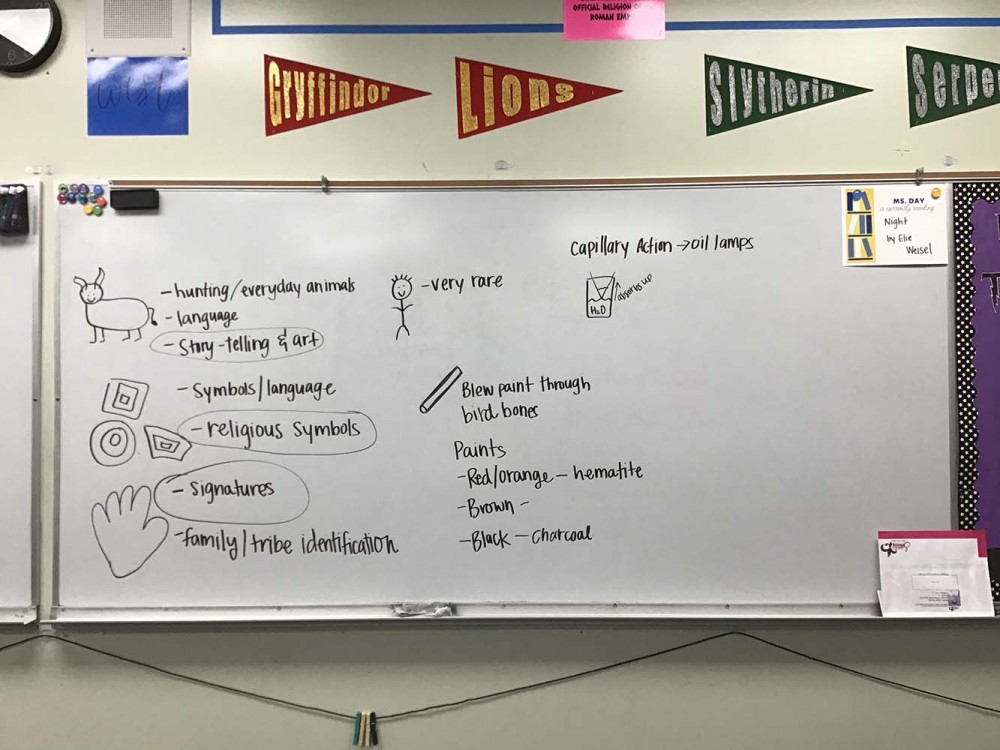 OFFICIAL RELIGION
ROMAN EMP
west
Gryffindor
Lions
Slytherin
Serpe
MS. DAY
is currently reading
Night
by Elie
Weisel
Capillary Action → oil lamps
absorbs up
H₂O
- hunting/everyday animals
- language
- Story-telling & art
- very rare
- Symbols/language
- religious Symbols
- Signatures
- family/tribe identification
Blew paint through
bird bones
Paints
- Red/orange - hematite
- Brown -
- Black - charcoal